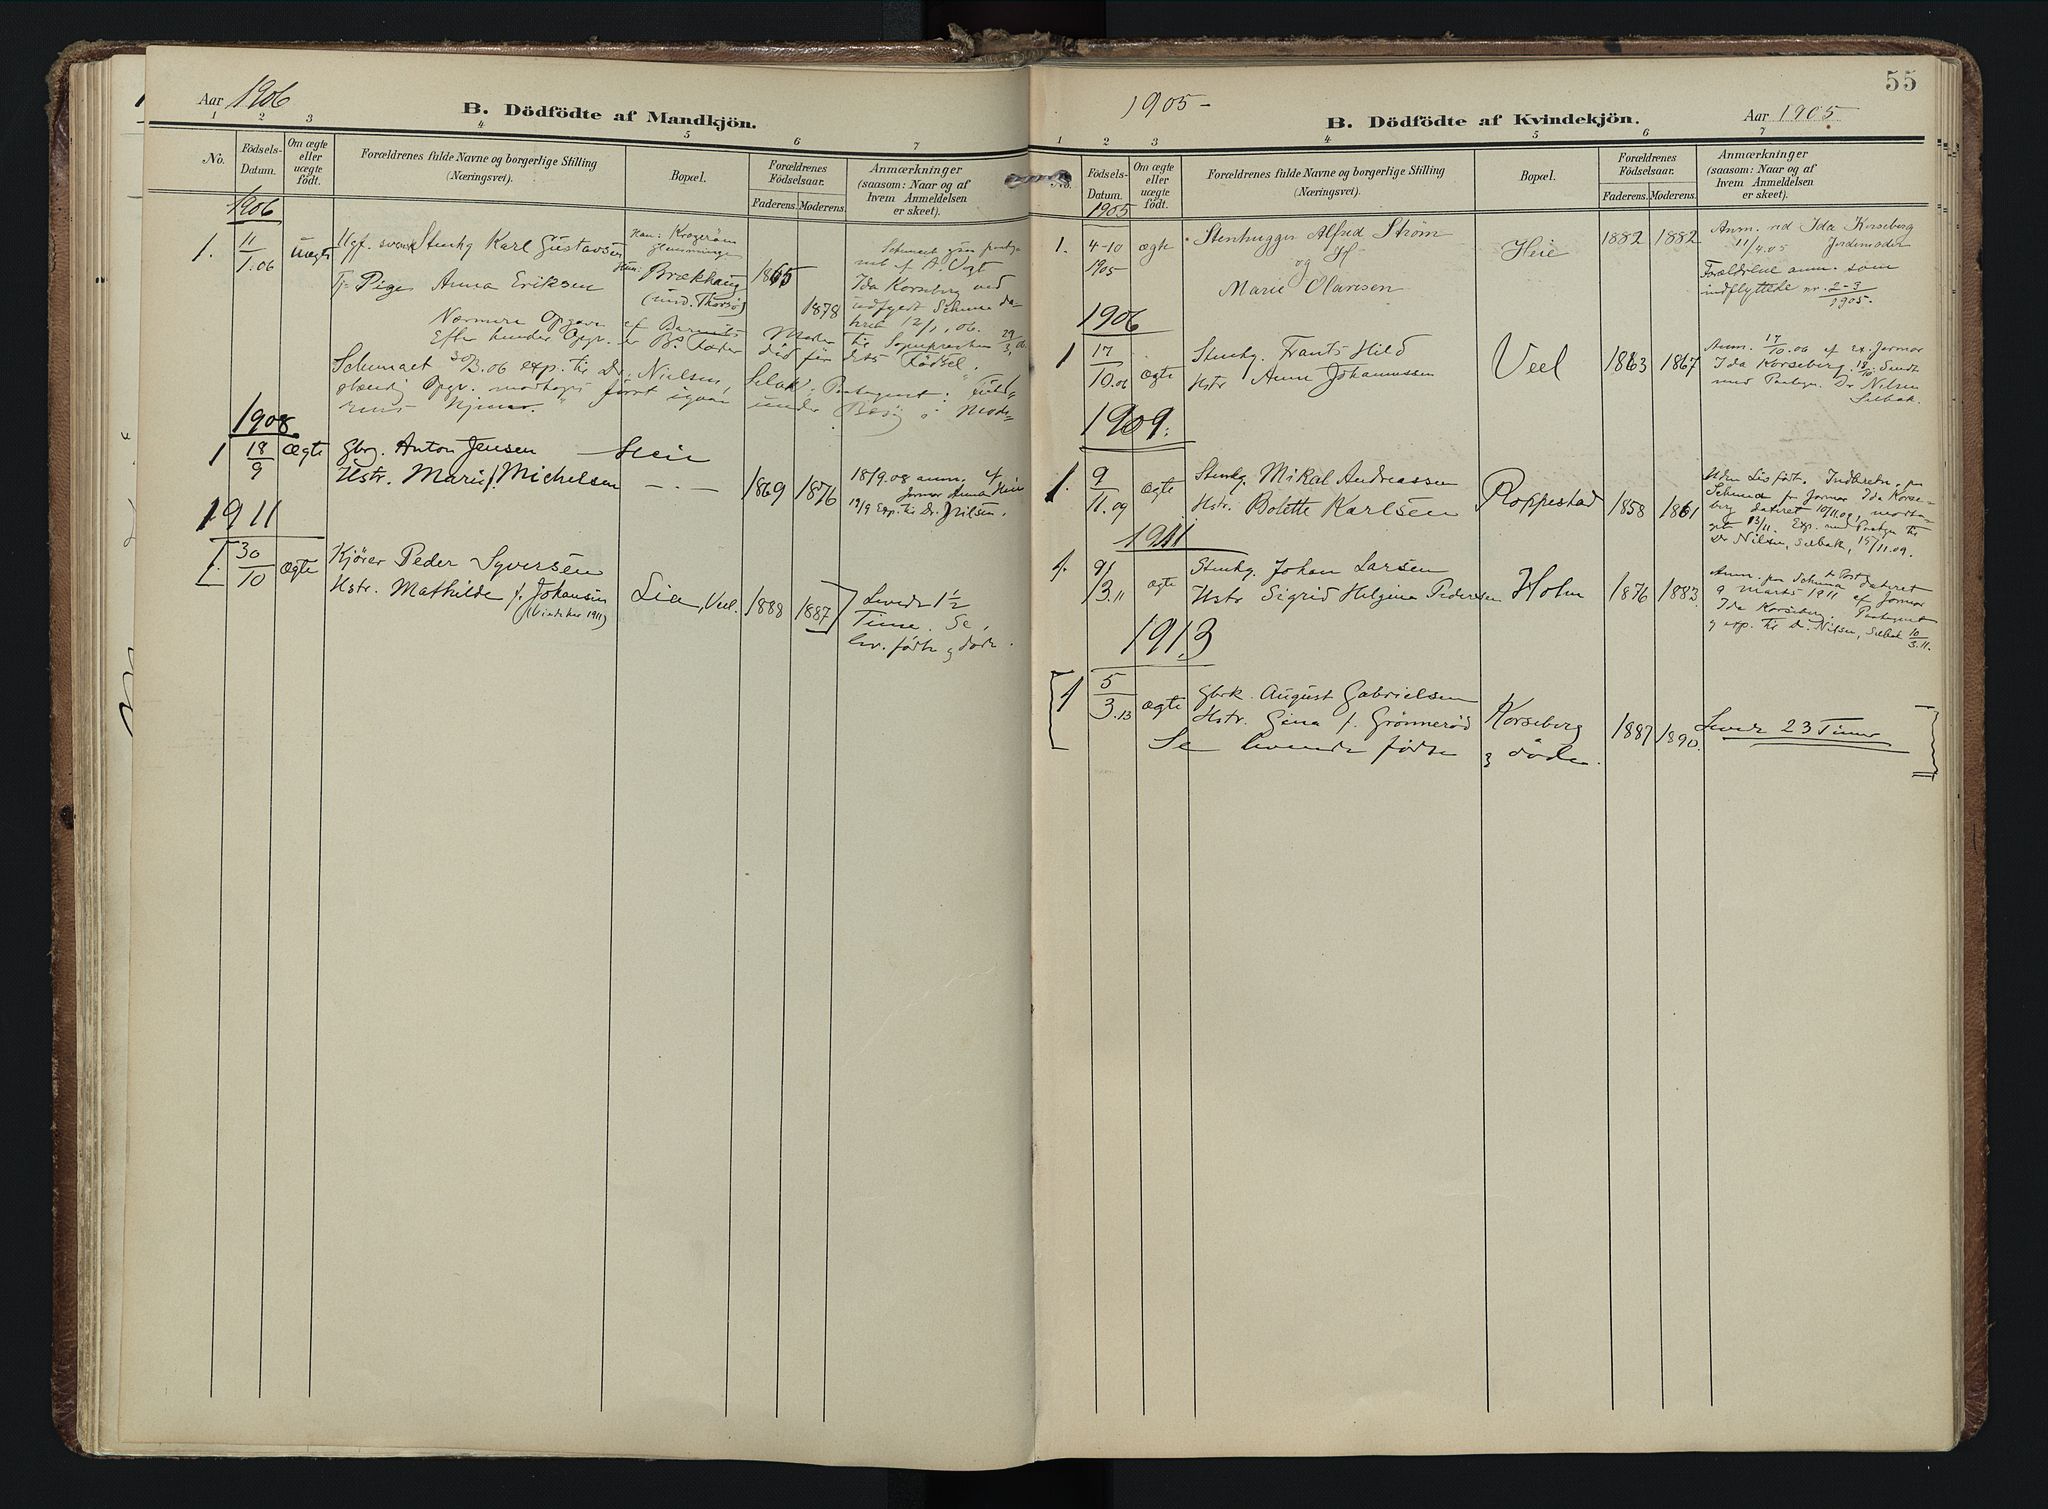 Aar 1906
B. Dödfödte af Mandkjön.
1 2 3 4 5 6 7
No.
Födsels-
Datum.
Om ægte
eller
uægte
födt.
Forældrenes fulde Navne og borgerlige Stilling
(Næringsvei).
Bopæl.
Forældrenes
Födselsaar.
Faderens. Moderens.
Anmærkninger
(saasom: Naar og af
hvem Anmeldelsen
er skeet).
1906
1. 11/1.06 uægte Ugf. svensk Stenhg Karl Gustavsen
Tj. Pige Anna Eriksen Brækhaug 1865
(ved. Thorsø) 1878
Ida Korseberg ved
12/1.06.
Nærmere Opgave af
Schemaet 30/3.06 exp. til Dr. Nielsen,
1908
1 18/9 Ægte Gbrg. Anton Jensen Heie
Hstr. Marie f. Michelsen — . — 1869 1876
18/9.08 anm. af
Jormor Anna Heie
19/9 Exp. til Dr. Nilsen.
1911
[1. 30/10 ægte Kjörer Peder Syversen
Hstr. Mathilde f. Johansen Lia, Veel. 1888 1887]
Levede 1½
Time. Se
lev. fødte og døde.
55
1905 -
Aar 1905
B. Dödfödte af Kvindekjön.
1 2 3 4 5 6 7
No.
Födsels-
Datum.
Om ægte
eller
uægte
födt.
Forældrenes fulde Navne og borgerlige Stilling
(Næringsvei).
Bopæl.
Forældrenes
Födselsaar.
Faderens. Moderens.
Anmærkninger
(saasom: Naar og af
hvem Anmeldelsen
er skeet).
1905
1. 4-10 1905 ægte Stenhugger Alfred Strøm
og H
Marie Olavesen
Heie 1882 1882
Anm. ved Ida Korseberg
11/4.05 Jordemoder
Forældrene anm. som
indflyttede nr. 2-3
1905.
1906
1 17/10.06 ægte Stenhg. Frants Hild
Hstr Anne Johannessen
Veel 1863 1867
Anm. 17/10.06 af Ex. Jormor
Ida Korseberg. 18/10. Sendt
med Dr Nilsen
Selbak.
1909.
1. 9/11.09 ægte Stenhg. Mikal Andreassen
Hstr. Bolette Karlsen
Roppestad 1858 1861
Indberetn. paa
Schema fra Jormor Ida Korse-
berg dateret 10/11.09, modta-
get 13/11. Exp. med til
Dr Nilsen, Selbak, 15/11.09.
1911
1. 9/3.11 ægte Stenhg. Johan Larsen
Hstr Sigrid Helgina Pedersen
Holm 1876 1883
Anm. paa Schema dateret
9 marts 1911 af Jormor
Ida Korseberg.
og exp. til Dr. Nilsen, Selbak 10/3.11.
1913
[1 5/3.13 ægte Gbrk. August Gabrielsen
Hstr. Gina f. Grönnerød
Korseberg 1887 1890. Levede 23 Timer]
Se levende fødte og døde.